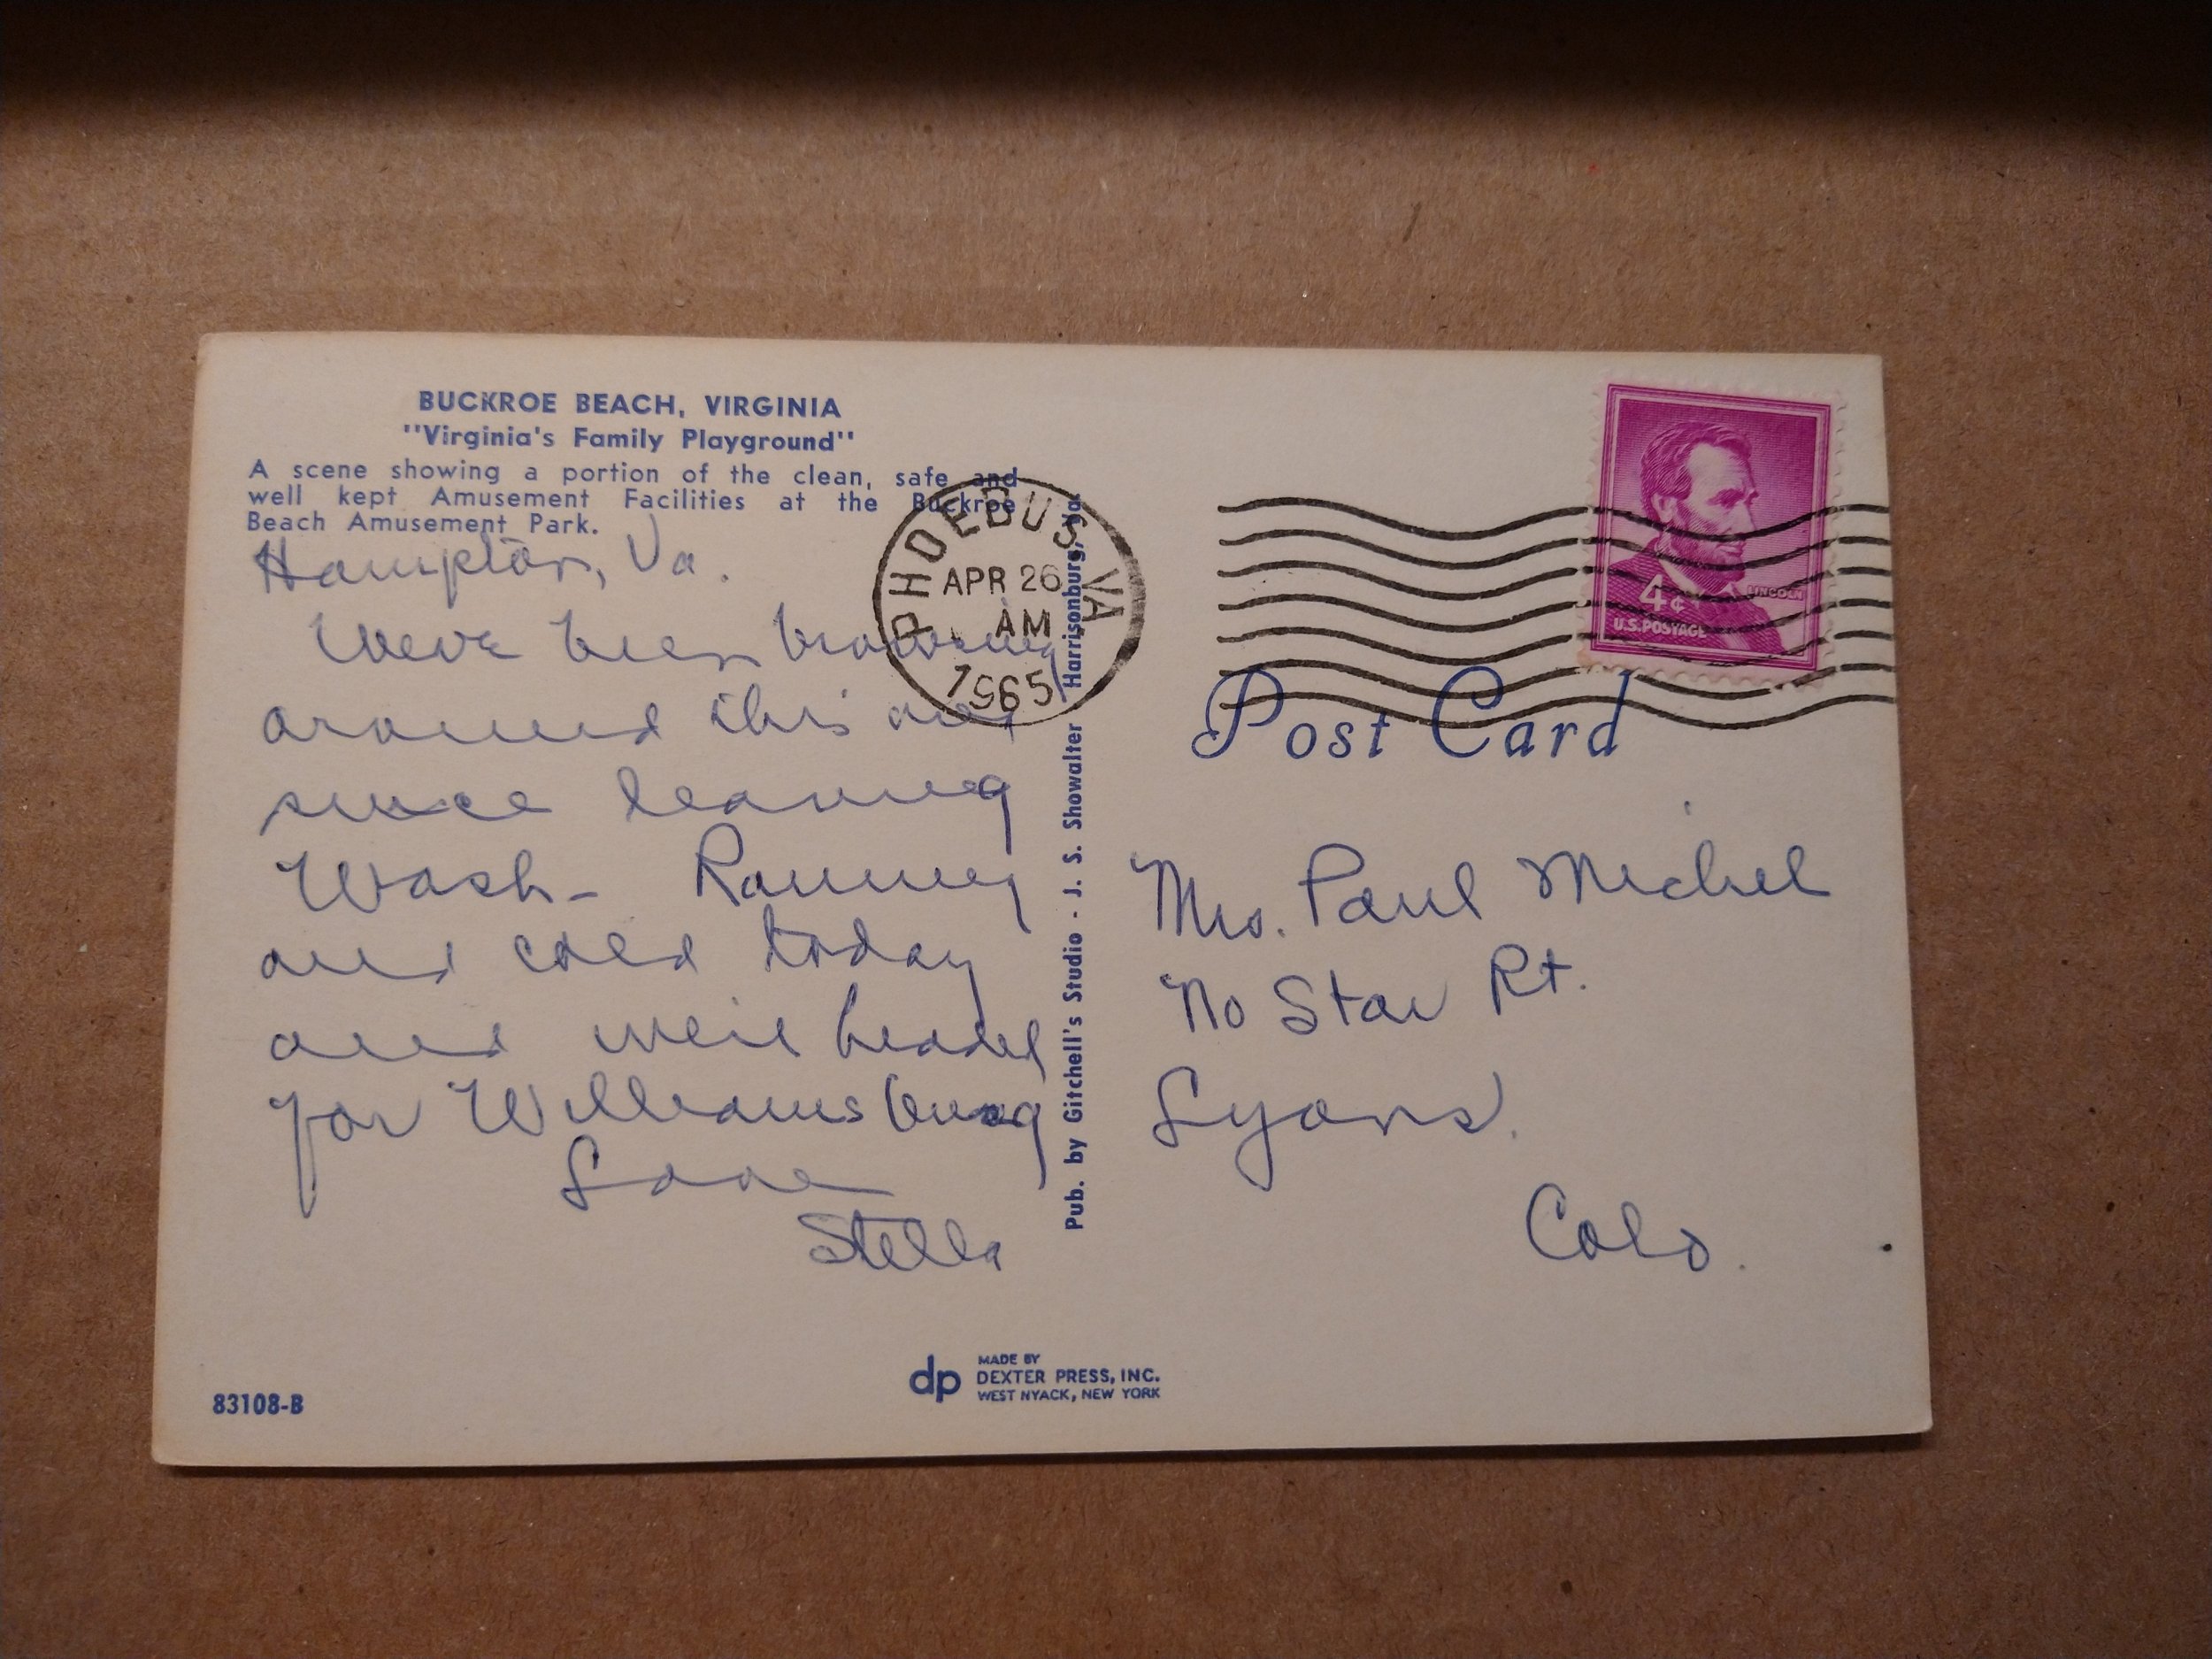 BUCKROE BEACH, VIRGINIA
"Virginia's Family Playground"
A scene showing a portion of the clean, safe and
well kept Amusement Facilities at the Buckroe
Beach Amusement Park.
Hampton, Va.
Weve been browsing
around this area
since leaving
Wash- Rainey
and cold today
and we're headed
for Williamsburg
Love
Stella
83108-B
dp
MADE BY
DEXTER PRESS, INC.
WEST NYACK, NEW YORK
Pub. by Gitchell's Studio - J. S. Showalter Harrisonburg, Va.
PHOEBUS VA
APR 26
AM
1965
4¢
LINCOLN
U.S. POSTAGE
Post Card
Mrs. Paul Michel
No Star Rt.
Lyons.
Colo.